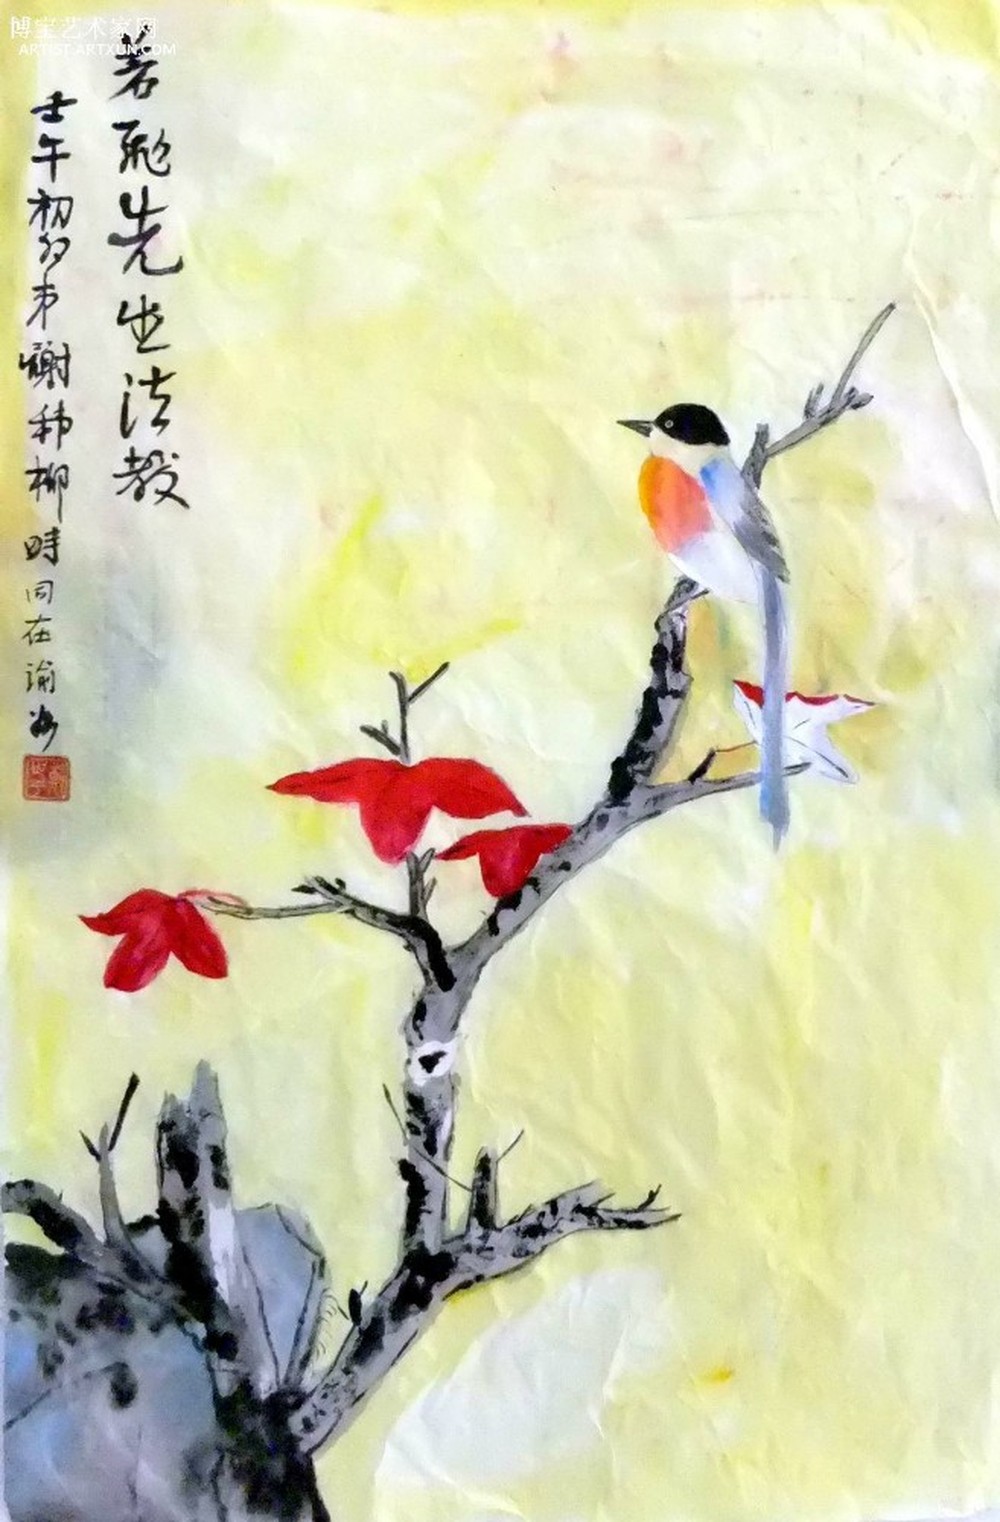 博宝艺术家网
ARTIST.ARTXUN.COM
若駝先生法教
壬午初弟謝稚柳時同在渝州